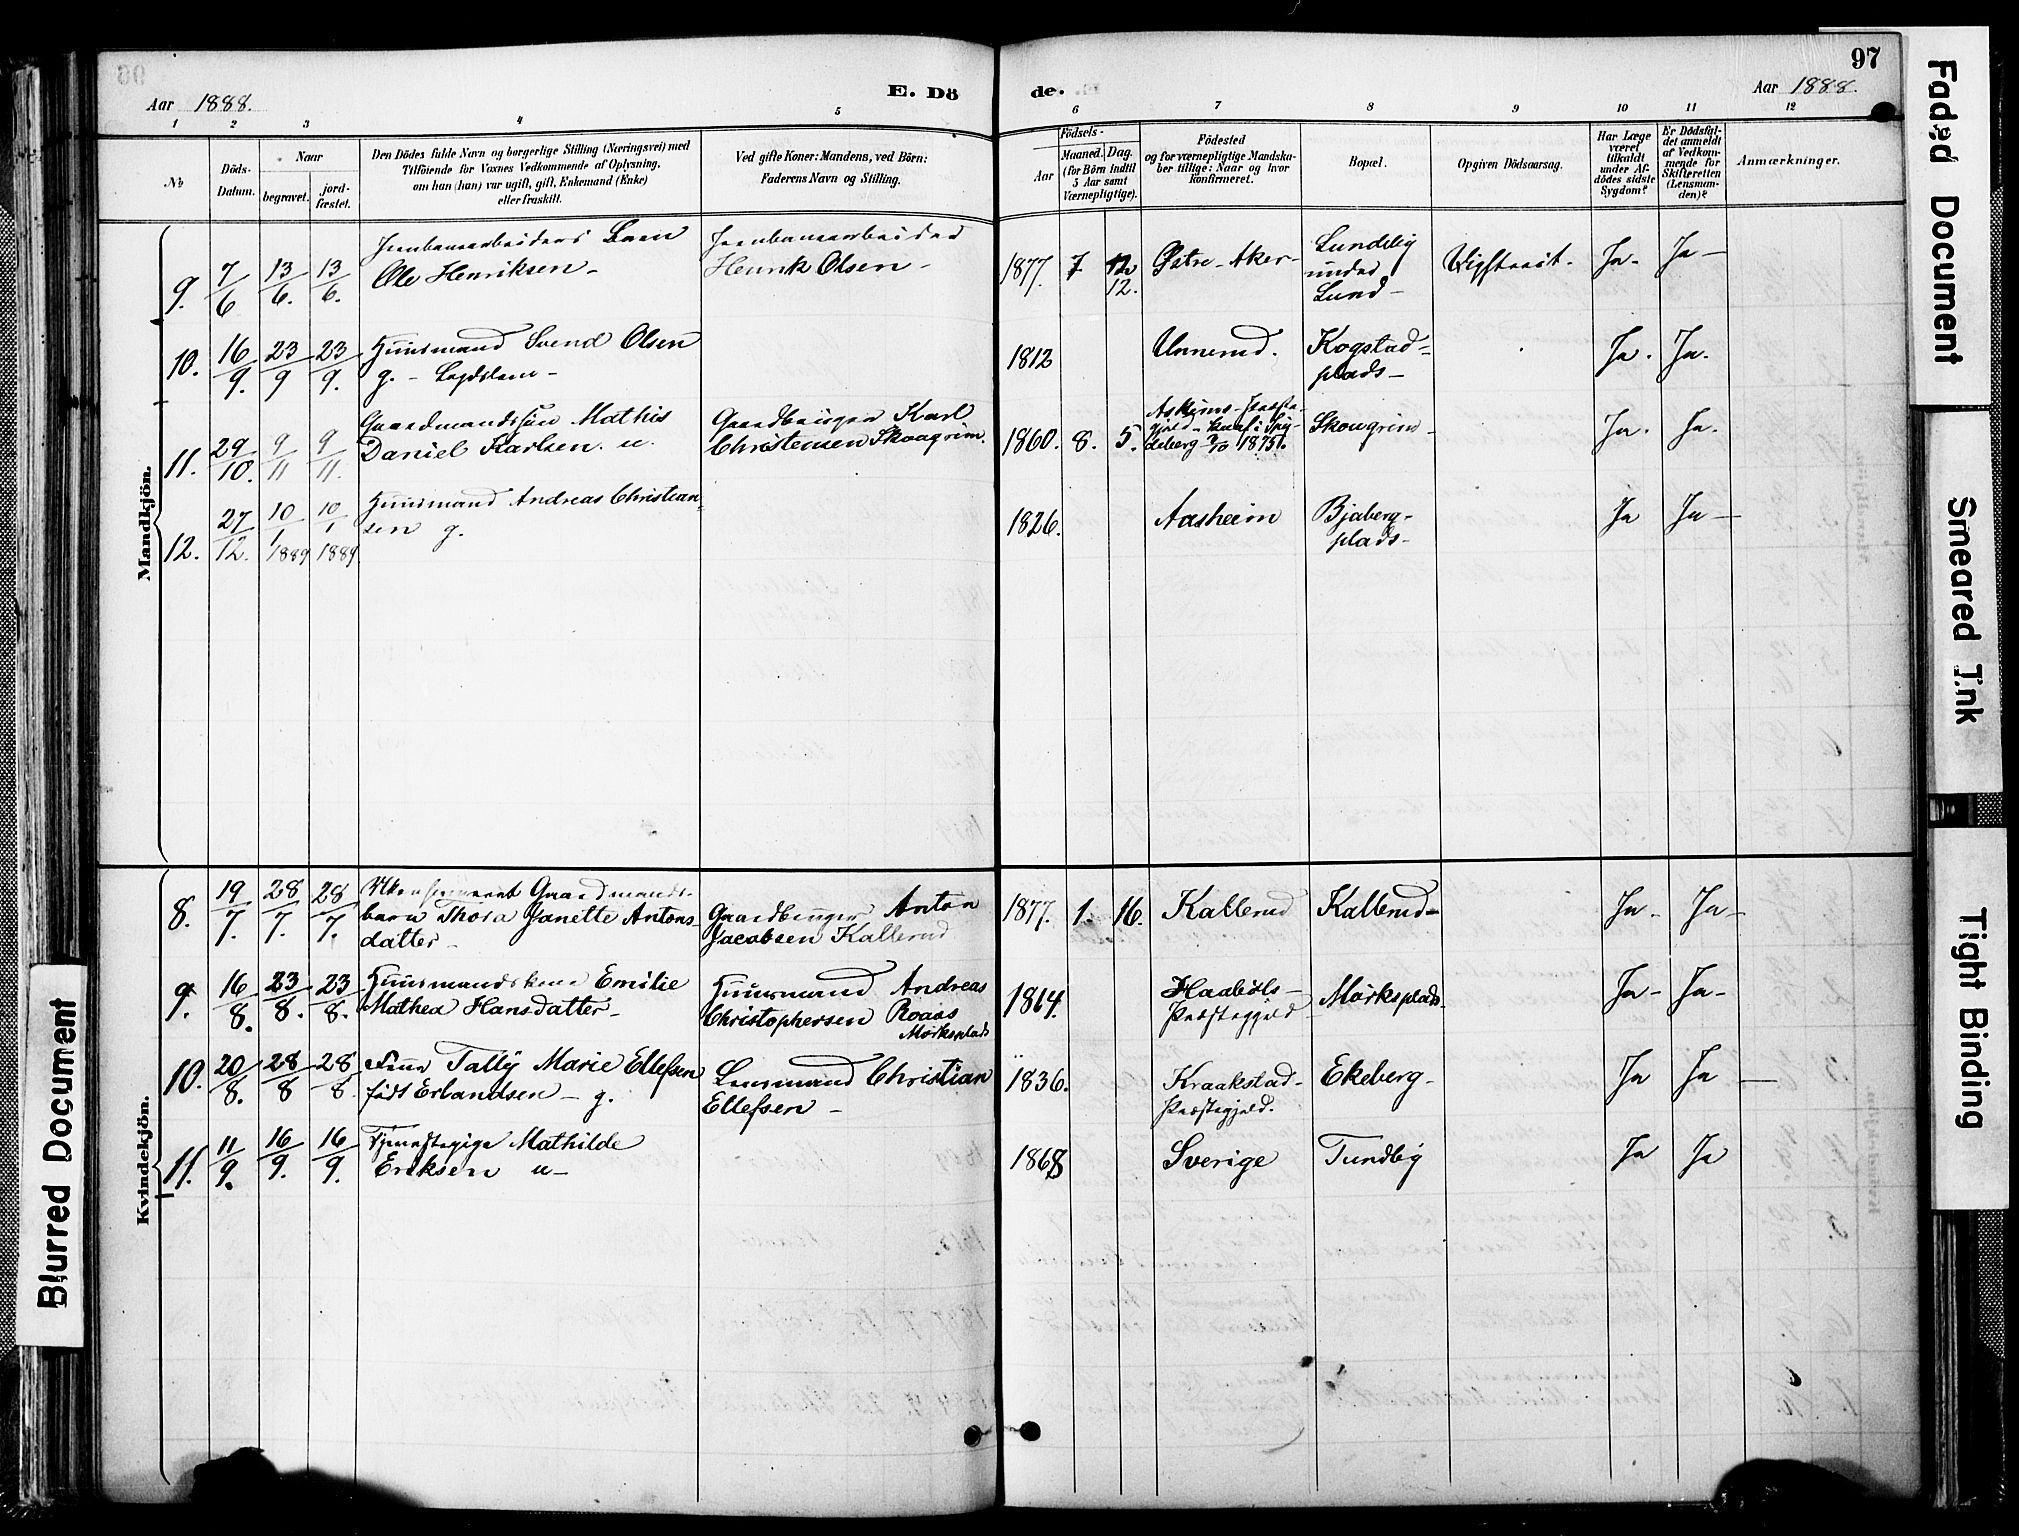 97
Aar 1888.
E. Dö
de.
Aar 1888.
1 2 3 4 5 6 7 8 9 10 11 12
No
Döds-
Datum.
Naar
begravet.
jord-
fæstet.
Den Dödes fulde Navn og borgerlige Stilling (Næringsvei) med
Tilföiende for Voxnes Vedkommende af Oplysning,
om han (hun) var ugift, gift, Enkemand (Enke)
eller fraskilt.
Ved gifte Koner: Mandens, ved Börn:
Faderens Navn og Stilling.
Födsels-
Aar
Maaned.
Dag.
(for Börn indtil
5 Aar samt
Værnepligtige).
Födested
og for værnepligtige Mandska-
ber tillige: Naar og hvor
konfirmeret.
Bopæl.
Opgiven Dödsaarsag.
Har Læge
været
tilkaldt
under Af-
dödes sidste
Sygdom?
Er Dödsfal-
det anmeldt
af Vedkom-
mende for
Skifteretten
(Lensman-
den)?
Anmærkninger.
Mandkjön.
9. 7/6 13/6. 13/6. Jernbanearbeiders Barn
Ole Henriksen -
Jernbanearbeider
Henrik Olsen -
1877. 7 12. Østre-Aker- Lundeby
under
Lund - Ja. Ja -
10. 16/9. 23/9 23/9. Huusmand Svend Olsen
g. - Lægdslem -
1812 Unnerud. Kogstad-
plads - Ja. Ja.
11. 29/10. 9/11 9/11. Gaardmandssøn Mathis
Daniel Karlsen. u.
Gaardbruger Karl
Christensen Skougrim.
1860. 8. 5. Askims-Præste-
gjeld - Konf. i Spy-
deberg 1875. Skougrim - Ja. Ja.
12. 27/12. 10/1 1889 10/1 1889. Huusmand Andreas Christian-
sen g.
1826. Aasheim Bjaberg-
plads - Ja Ja -
Kvindekjön.
8. 19/7. 28/7. 28/7. Ukonfirmeret Gaardmands-
barn Thora Janette Antons-
datter -
Gaardbruger Anton
Jacobsen Kallerud
1877. 1. 16. Kallerud Kallerud - Ja - Ja -
9. 16/8. 23/8. 23/8. Huusmandskone Emilie
Mathea Hansdatter -
Huusmand Andreas
Christophersen Roaas
Mørksplads
1814. Haabøls-
Præstegjeld Mørksplads. Ja - Ja -
10. 20/8. 28/8 28/8. Frue Tally Marie Ellefsen
født Erlandsen - g.
Lensmand Christian
Ellefsen -
1836. Kraakstad-
Præstegjeld. Ekeberg - Ja Ja -
11. 11/9. 16/9. 16/9. Tjenestepige Mathilde
Eriksen u -
1868 Sverige Tundby Ja Ja
Faded Document
Smeared Ink
Tight Binding
Blurred Document